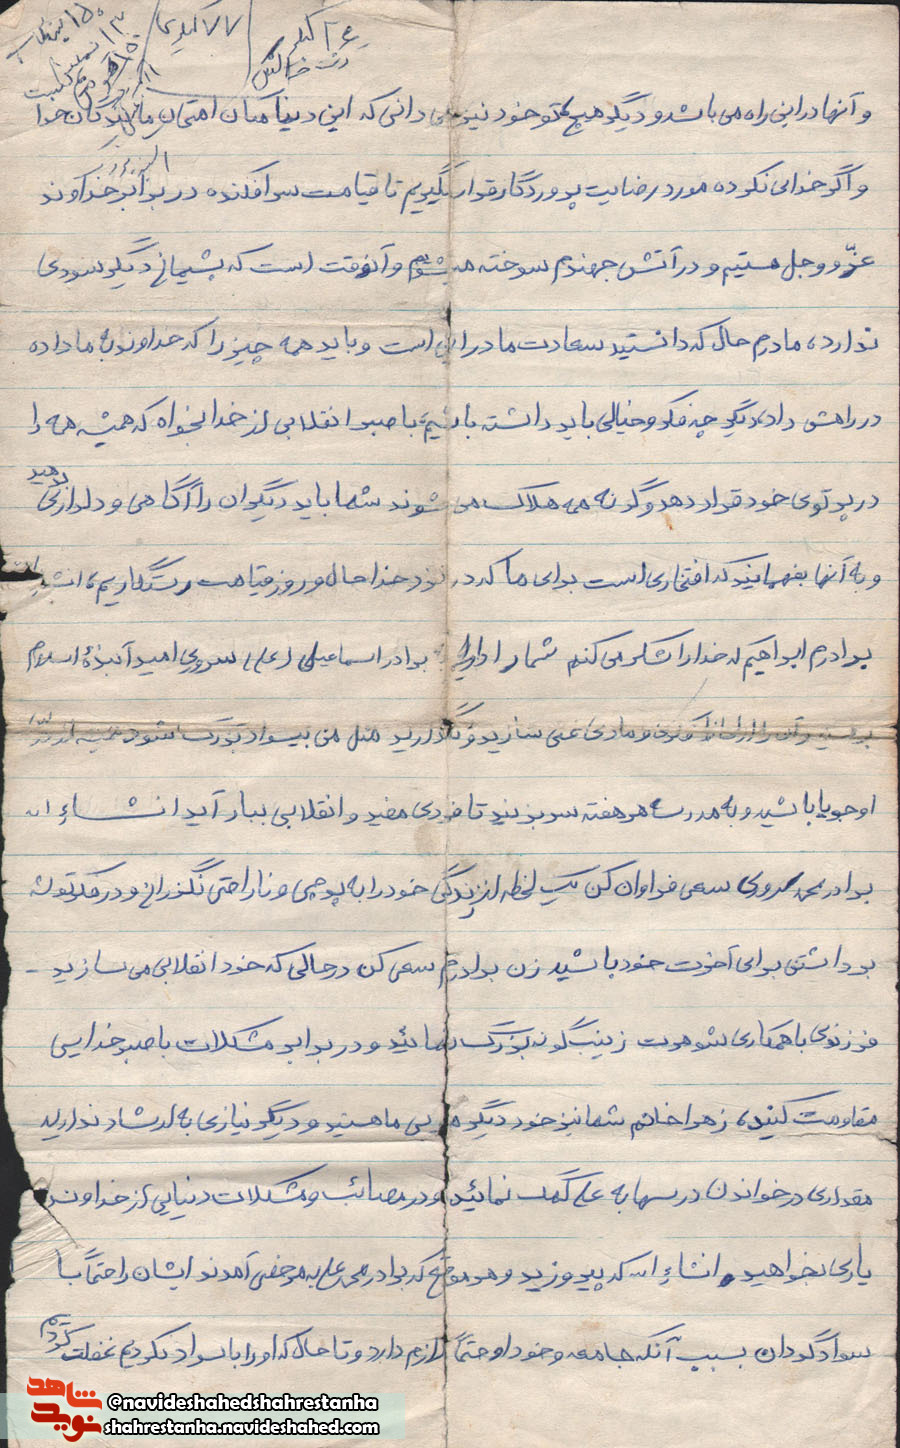 و آنها در این راه می باشد و دیگر هیچ تو خود نیز می دانی که این دنیا مکان امتحان ما بندگان خدا
و اگر خدایی نکرده مورد رضایت پروردگار قرار نگیریم تا قیامت سرافکنده در برابر خداوند
عزّ و وجل هستیم و در آتش جهنم سوخته میشویم و آنوقت است که پشیمانی دیگر سودی
ندارد، مادرم حال که دانستید سعادت ما در این است و باید همه چیز را که خداوند به ما داده
در راهش داد، دیگر چه فکر و خیالی باید داشته باشیم، با صبر انقلابی از خدا بخواه که همیشه همه را
در پرتوی خود قرار دهد وگرنه همه هلاک می شوند شما باید دیگران را آگاهی و دلداری بدهید
و به آنها بفهمانید که افتخاری است برای ما که در نزد خدا حال و روز قیامت رستگاریم،
برادرم ابراهیم که خدا را شکر می کنم شما را دارای برادر اسماعیل علی سروری امید آینده اسلام
غنی سازید و نگذارید مثل من بیسواد بزرگ شود همیشه از
او جویا باشید و به مدرسه هر هفته سر بزنید تا فردی مفید و انقلابی ببار آید انشاءاله
برادر محمد سروری سعی فراوان کن یک لحظه از زندگی خود را به پوچی و ناراحتی نگذرانی و در فکر توشه
برداشتن برای آخرت خود باشید زن برادرم سعی کن در حالی که خود انقلابی می سازید -
فرزندی با همکاری شوهرت زینب گونه بزرگ نمائید و در برابر مشکلات با صبر خدایی
مقاومت کنید، زهرا خانم شما نیز خود دیگر مربی ما هستید و دیگر نیازی به ارشاد ندارید
مقداری در خواندن درسها به علی کمک نمائید و در مصائب و مشکلات دنیایی از خداوند
یاری بخواهید انشاءاله که پیروزید و هر موقع که برادر محمد علی به مرخصی آمدند ایشان را حتماً با
سواد گردان بسبب آنکه جامعه و خود او حتماً لازم دارد و تا حال که او را با سواد نکردیم غفلت کردیم
شاهد
نوید
©navideshahedshahrestanha
shahrestanha.navideshahed.com